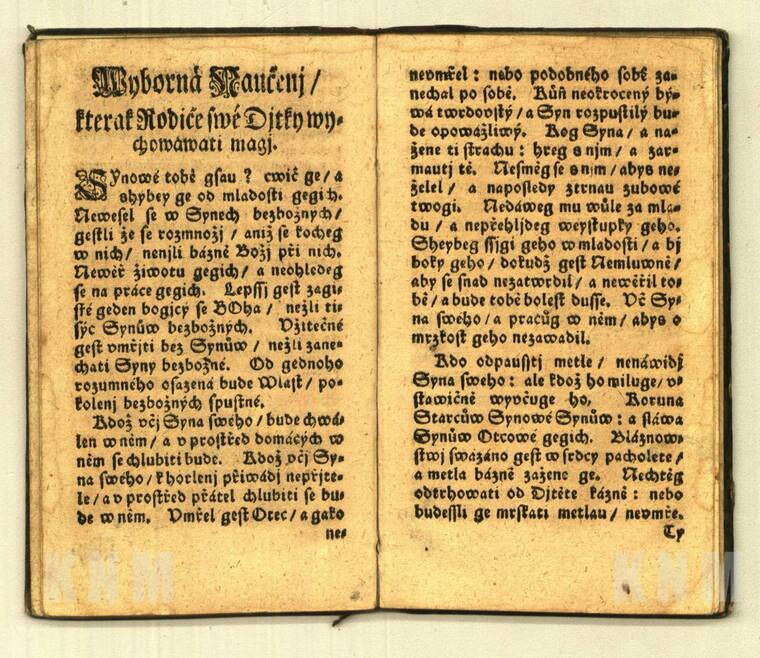 Wyborná Naučenj /
kterak Rodiče swé Djtky wy-
chowáwati magj.
SYnowé tobě gsau ? cwič ge / a
shybey ge od mladosti gegich.
Newesel se w Synech bezbožných /
gestli že se rozmnožj / aniž se kocheg
w nich / nenjli bázně Božj při nich.
Newěř žiwotu gegich / a neohledeg
se na práce gegich. Lepssj gest zagi-
sté geden bogjcý se BOha / nežli ti-
sýc Synůw bezbožných. Vžitečné
gest vmřjti bez Synůw / nežli zane-
chati Syny bezbožné. Od gednoho
rozumného osazena bude Wlast / po-
kolenj bezbožných spustne.
Kdož včj Syna sweho / bude chwá-
len w něm / a v prostřed domácých w
něm se chlubiti bude. Kdož včj Sy-
na sweho / k horlenj přiwádj nepřjte-
le / a v prostřed přátel chlubiti se bu-
de w něm. Vmřel gest Otec / a gako
ne-
nevmřel : nebo podobného sobě za-
nechal po sobě. Kůň neokrocený bý-
wá twrdoustý / a Syn rozpustilý bu-
de opowážliwý. Kog Syna / a na-
žene ti strachu : hreg s njm / a zar-
mautj tě. Nesměg se s njm / abys ne-
želel / a naposledy ztrnau zubowé
twogi. Nedáweg mu wůle za mla-
du / a nepřehljdeg weystupky geho.
Sheybeg ssjgi geho w mladosti / a bj
boky geho / dokudž gest Nemluwně /
aby se snad nezatwrdil / a newěřil to-
bě / a bude tobě bolest dusse. Vč Sy-
na sweho / a pracůg w něm / abys o
mrzkost geho nezawadil.
Kdo odpaustj metle / nenáwidj
Syna sweho : ale kdož ho miluge / v-
stawičně wyvčuge ho. Koruna
Starcůw Synowé Synůw : a sláwa
Synůw Otcowé gegich. Bláznow-
stwj swázáno gest w srdcy pacholete /
a metla bázně zažene ge. Nechtěg
odtrhowati od Djtěte kázně : nebo
budessli ge mrskati metlau / nevmře.
Ty
KNM
KNM